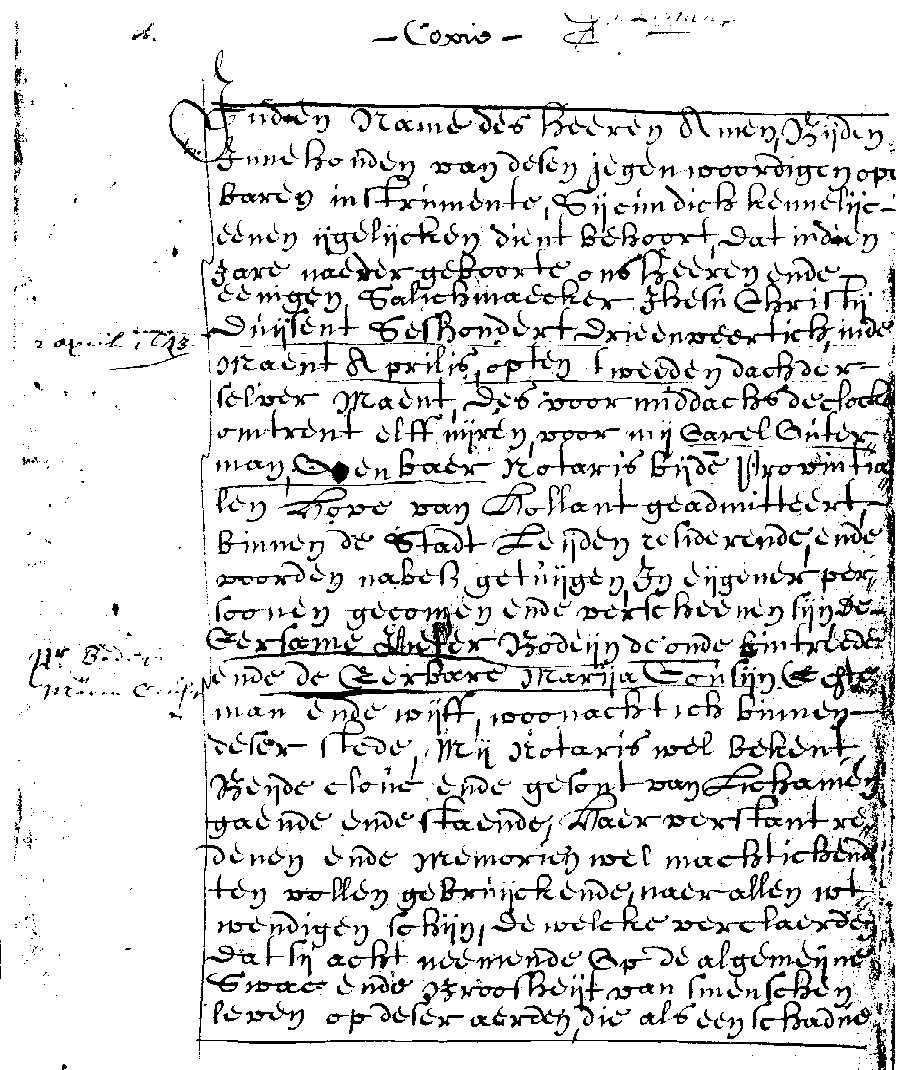 - Copie -
Inden Name des heeren Amen, Bijden
Innehouden van desen jegenwoordigen ope
baren instrumente, Sij cundich kennelijc-
eenen ijgelijcken dient behoort, dat inden
Jare naerder geboorte ons heeren ende
eenigen Salichmaecker Jhesu Christij
Duijsent Seshondert drieenveertich, inde
2 april 1643
Maent Aprilis, opten tweeden dach der-
selver Maent, des voormiddachs de clocke
omtrent elff uijren, voor mij Carel Outer
man, Openbaer Notaris bijde Provintia
len Hove van Hollant geadmitteert,
binnen de Stadt Leijden residerende, ende
voorden nabes getuijgen In eijgener per
soonen gecomen ende verscheenen sijn de
Eersame Pieter Bodeijn de onde
ende de Eerbare Marija Cousijn Echte
man ende wijff, woonachtich binnen
deser stede, Mij Notaris wel bekent
Beijde cloue ende gesont van Lichamen
gaende ende staende, Haer verstant re
denen ende Memorien wel machtich ende
ten vollen gebruijckende, naer allen wt
wendigen schijn, De welcke verclaerden
Dat sij acht neemende Op de algemeijne
Swac ende Broosheijt van smenschen
leven op deser aerden, die als een schadue